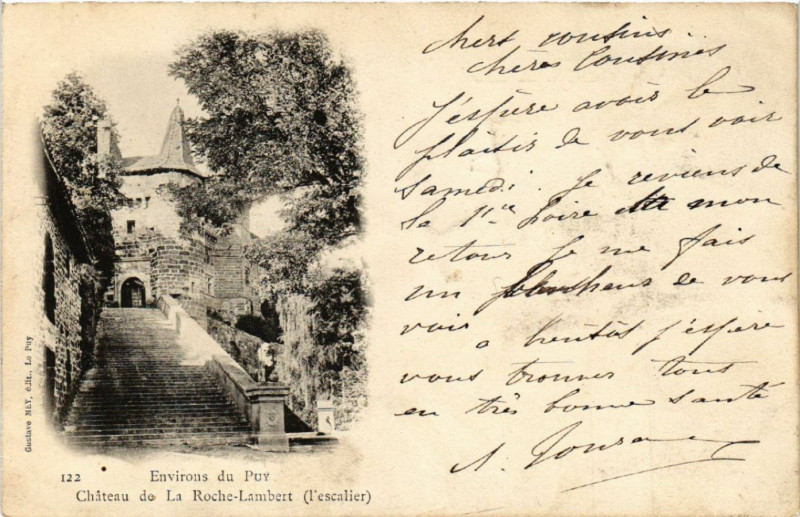 chers cousins..
chères Cousines
J'espère avoir le
plaisir de vous voir
Samedi. Je reviens de
la Hte Loire mon
retour je me fais
un de vous
voir
a bientôt j'espère
vous trouver tous
en très bonne santé
Gustave MEY, édit., Le Puy
122 Environs du PUY
Château de La Roche-Lambert (l'escalier)